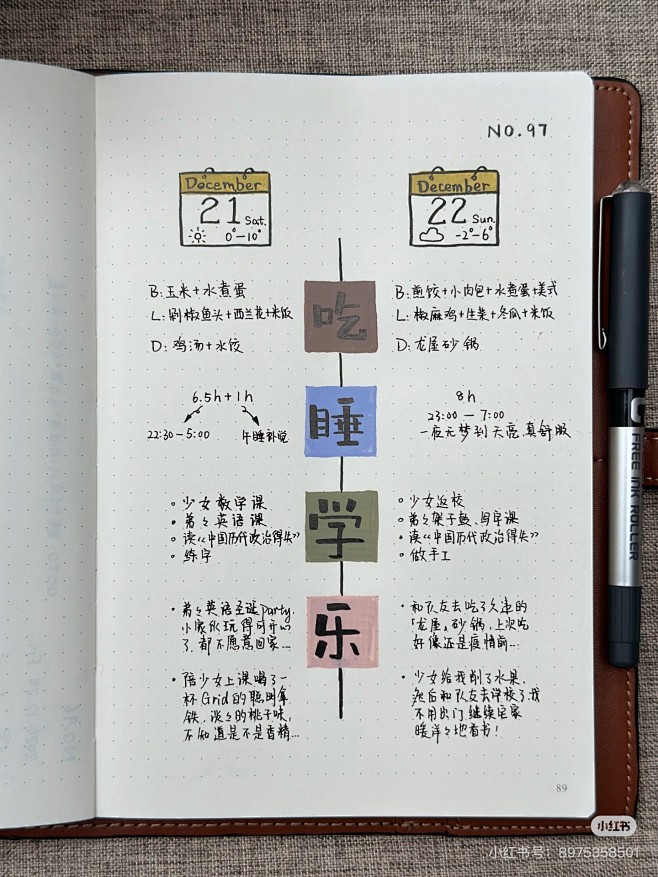 NO.97
December
21 Sat.
0°-10°
December
22 Sun.
-2°-6°
吃
B:玉米+水煮蛋
L:剁椒鱼头+西兰花+米饭
D:鸡汤+水饺
B:煎饺+小肉包+水煮蛋+美式
L:椒麻鸡+生菜+冬瓜+米饭
D:龙屋砂锅
睡
6.5h+1h
22:30-5:00
午睡补觉
8h
23:00-7:00
一夜无梦到天亮,真舒服
学
少女数学课
弟々英语课
读《中国历代政治得失》
练字
少女返校
弟々架子鼓、写字课
读《中国历代政治得失》
做手工
乐
弟々英语圣诞party,
小家伙玩得可开心
了,都不愿意回家…
陪少女上课喝了一
杯Grid的聪明拿
铁,淡々的桃子味,
不知道是不是香精…
和队友去吃了久违的
「龙屋」砂锅,上次吃
好像还是疫情前…
少女给我削了水果,
然后和队友去学校了,我
不用出门,继续宅家
暖洋々地看书!
89
FREE INK ROLLER
小红书
小红书号:8975358501